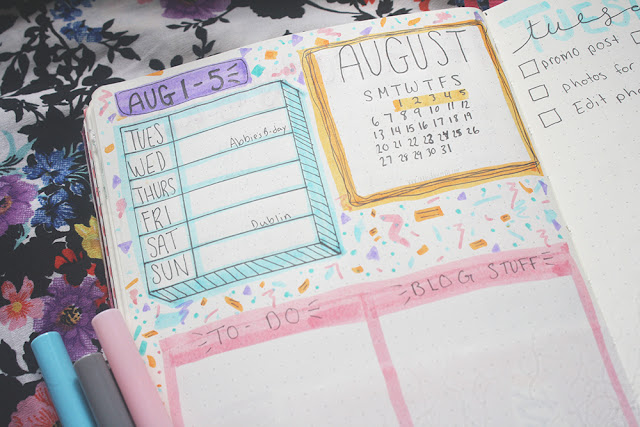 AUG 1-5
TUES
WED
Abbies B-day
THURS
FRI
SAT
Dublin
SUN
AUGUST
S M T W T F S
1 2 3 4 5
6 7 8 9 10 11 12
13 14 15 16 17 18 19
20 21 22 23 24 25 26
27 28 29 30 31
TO-DO
BLOG STUFF
tues
promo post
photos for
Edit pho